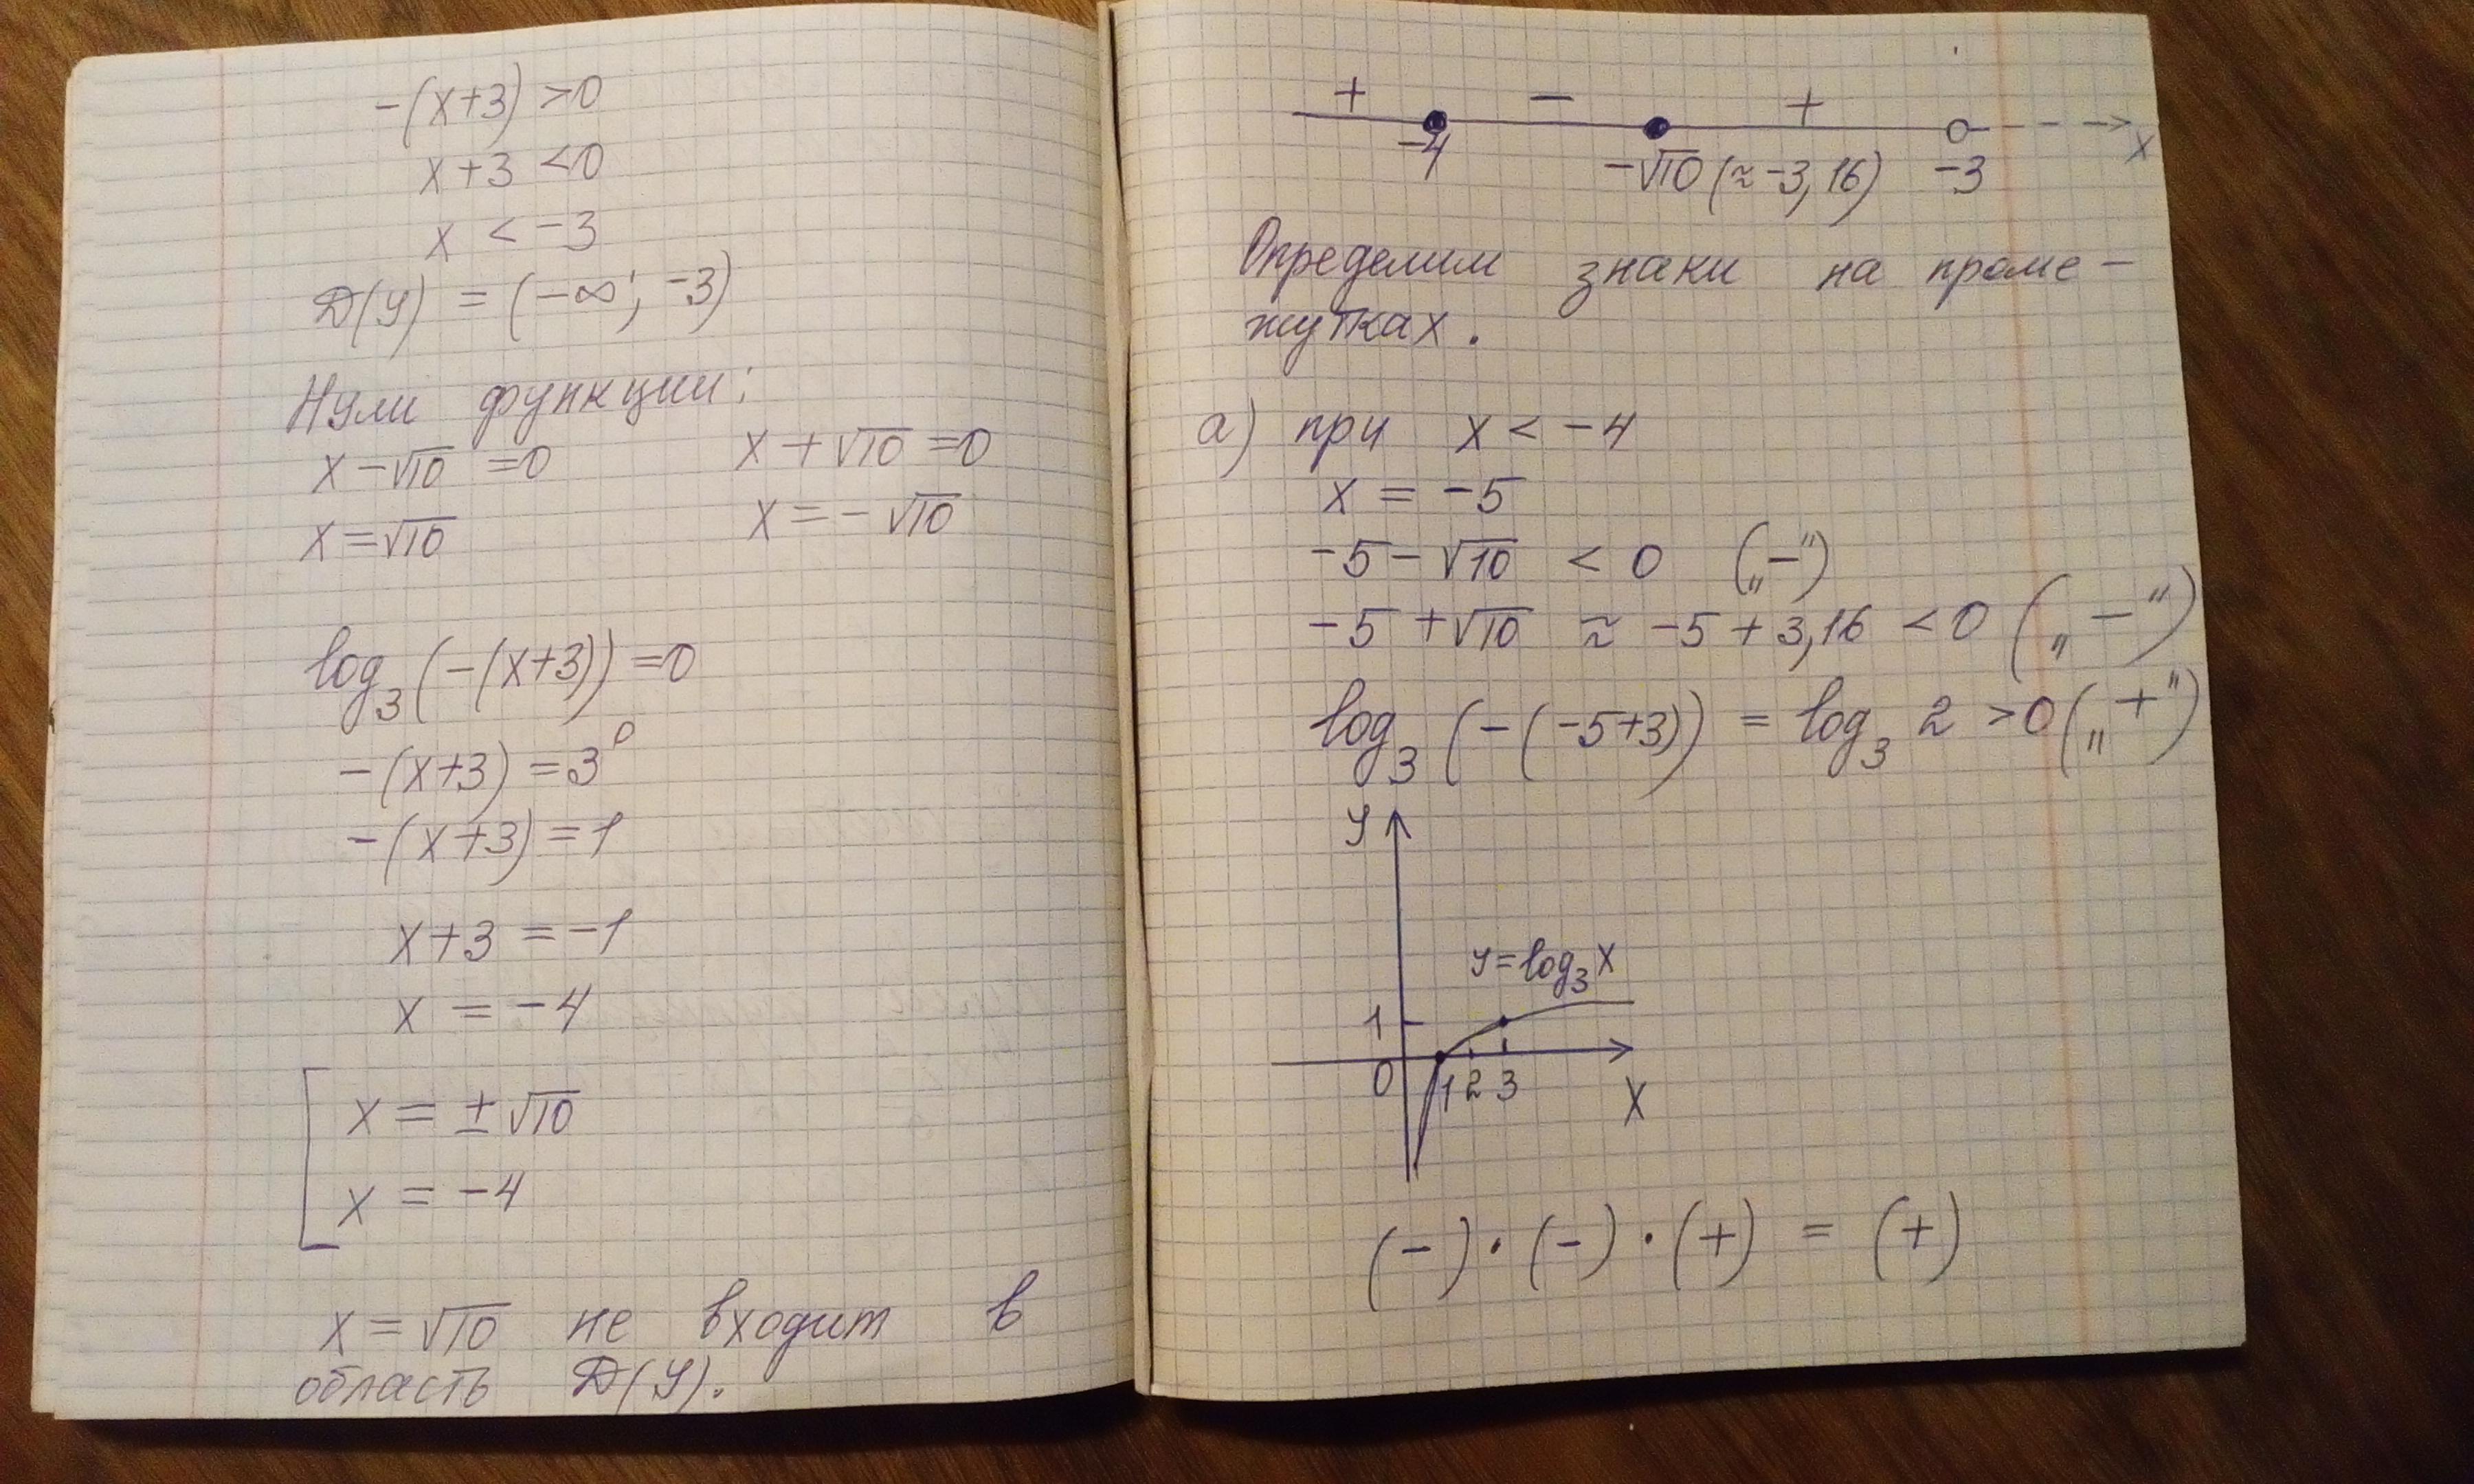 -(x+3) >0
x+3 <0
x < -3
D(y) = (-∞; -3)
Нули функции:
x-√10 =0 x+√10 =0
x=√10 x=-√10
log₃(-(x+3))=0
-(x+3)=3⁰
-(x+3)=1
x+3 =-1
x = -4
[ x = ±√10
x = -4
x=√10 не входит в
область D(y).
+ - +
-4 -√10 (≈-3,16) -3 x
Определим знаки на проме-
жутках.
а) при x < -4
x = -5
-5-√10 < 0 („-")
-5+√10 ≈ -5+3,16 <0 („-")
log₃(-(-5+3)) = log₃ 2 >0 („+")
y
y=log₃x
1
0 1 2 3
x
(-)·(-)·(+) = (+)